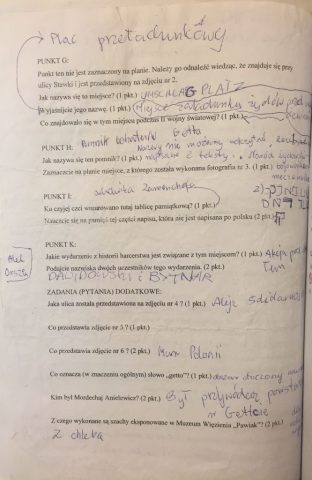 Plac przeładunkowy
PUNKT G:
Punkt ten nie jest zaznaczony na planie. Należy go odnaleźć wiedząc, że znajduje się przy
ulicy Stawki i jest przedstawiony na zdjęciu nr 2.
Jak nazywa się to miejsce? (1 pkt.) UMSCHLAGPLATZ
Wyjaśnijcie jego nazwę. (1 pkt.) (Miejsce załadunku żydów przed
Co znajdowało się w tym miejscu podczas II wojny światowej? (1 pkt.)
Pomnik bohaterów Getta
PUNKT H: Nazwy nie możemy odczytać,
Jak nazywa się ten pomnik? (1 pkt.) napisane z tekstu...
Zaznaczcie na planie miejsce, z którego została wykonana fotografia nr 3. (1 pkt.)
męczennik
PUNKT I:
Ku czyjej czci wmurowano tutaj tablicę pamiątkową? (1 pkt.)
Nauczcie się na pamięć tej części napisu, która nie jest napisana po polsku (2 pkt.)
PUNKT K:
Jakie wydarzenie z historii harcerstwa jest związane z tym miejscem? (1 pkt.) Akcja pod
Podajcie nazwiska dwóch uczestników tego wydarzenia. (2 pkt.)
BYTNAR
ZADANIA (PYTANIA) DODATKOWE:
Jaka ulica została przedstawiona na zdjęciu nr 4 ? (1 pkt.) Aleja Solidarności
Co przedstawia zdjęcie nr 5 ? (1 pkt.)
Co przedstawia zdjęcie nr 6 ? (2 pkt.) Mum Polonii
Co oznacza (w znaczeniu ogólnym) słowo „getto"? (1 pkt.)
Kim był Mordechaj Anielewicz? (2 pkt.) Był przywódcą powstania
w Getcie
Z czego wykonane są szachy eksponowane w Muzeum Więzienia „Pawiak"? (2 pkt.)
Z chleba